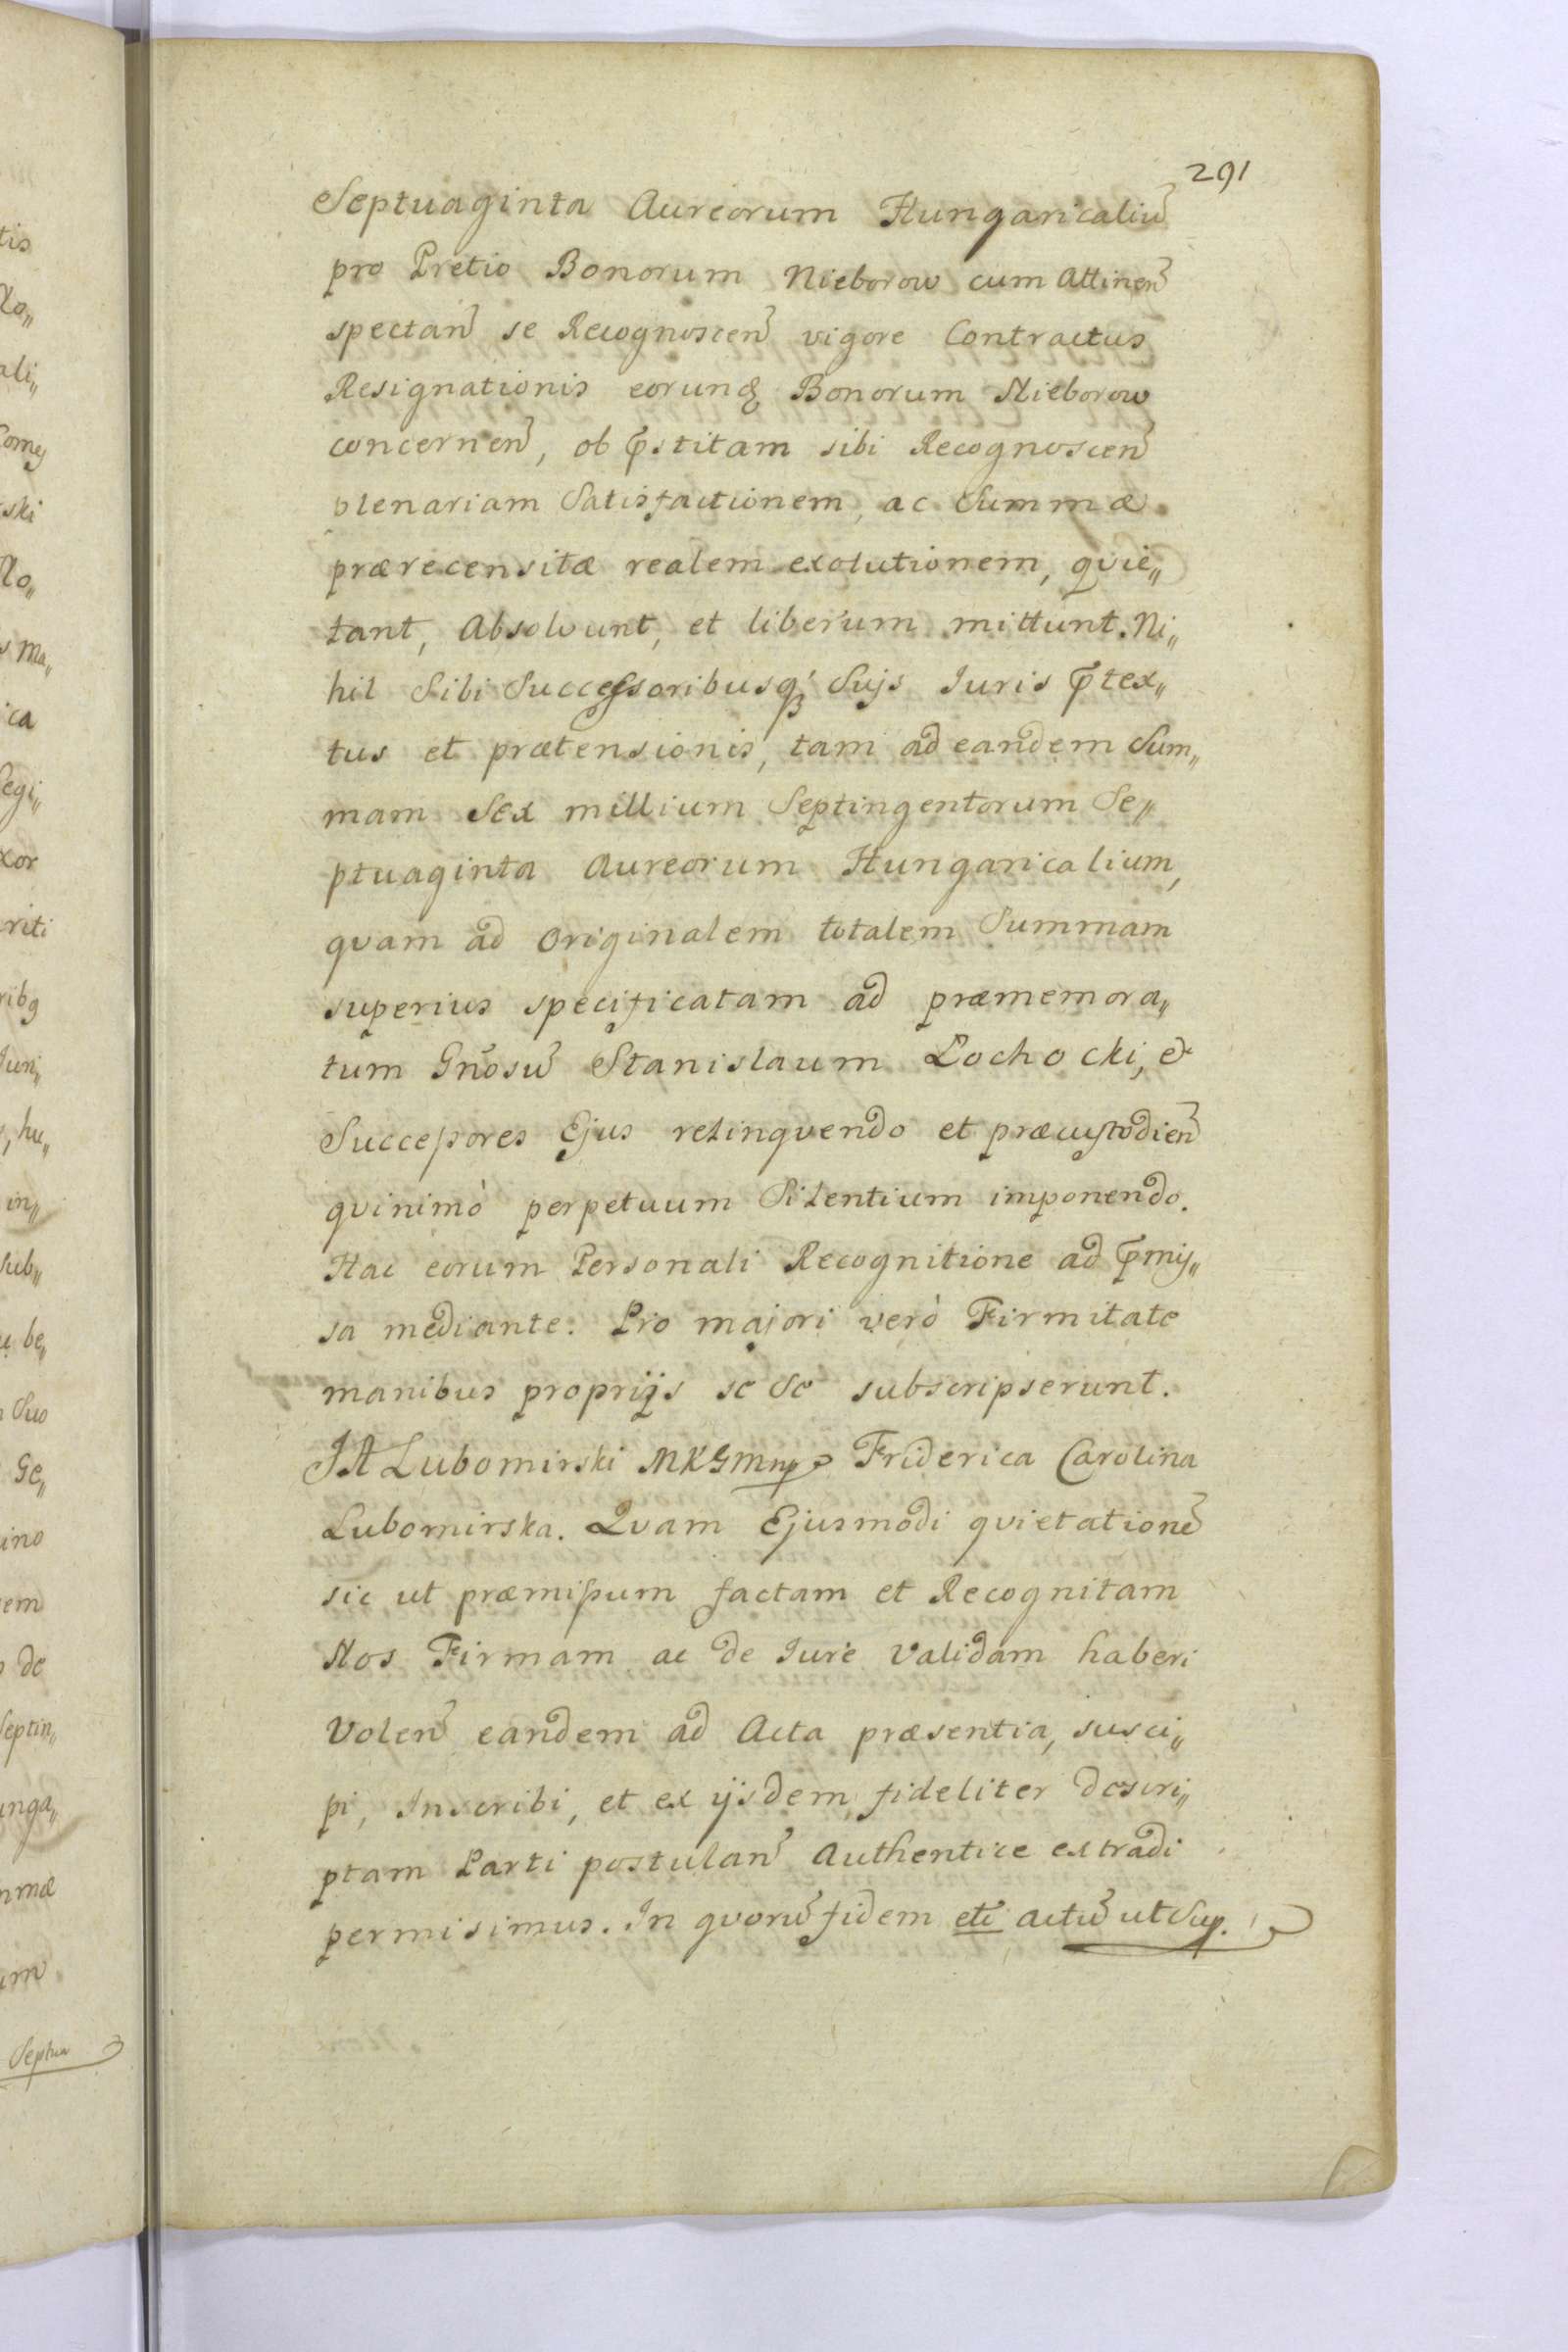 291
Septuaginta Aureorum Hungaricaliu̅
pro Pretio Bonorum Nieborow cum Attinen̅
spectan̅ se Recognoscen̅ vigore Contractus
Resignationis eorunḍ Bonorum Nieborow
concernen̅, ob p̅stitam sibi Recognoscen̅
plenariam Satisfactionem, ac Summæ
prærecensitæ realem exolutionem, qvie„
tant, Absolvunt, et liberum mittunt. Ni„
hil Sibi Successoribusq́₃ Sujs Iuris p̅tex„
tus et prætensionis, tam ad eandem Sum„
mam Sex millium Septingentorum Se„
ptuaginta Aureorum Hungaricalium,
qvam ad Originalem totalem Summam
superius specificatam ad præmemora„
tum Gn̅osu̅ Stanislaum Lochocki, &
Successores Ejus relinqvendo et præcustodien̅
qvinimò perpetuum Silentium imponendo.
Hac eorum Personali Recognitione ad p̅mis„
sa mediante. Pro majori verò Firmitate
manibus proprijs se Se subscripserunt.
JA Lubomirski MKGmp Friderica Carolina
Lubomirska. Qvam Ejusmodi qvietatione̅
sic ut præmissum factam et Recognitam
Nos Firmam ac de Iure Validam haberi
Volen̅ eandem ad Acta præsentia, susci„
pi, Inscribi, et ex ijsdem fideliter descri„
ptam Parti postulan̅ Authentice extradi
permisimus. In qvoru̅ fidem etc̅ actu̅ ut Sup.
tis
No„
ali„
Comes
ski
No„
s Ma„
ica
Regi„
xor
riti
ribq
Iuri„
, hu„
in„
Sub„
be„
Suo
Ge„
ino
em
de
Septin„
unga„
mmæ
um
Septua